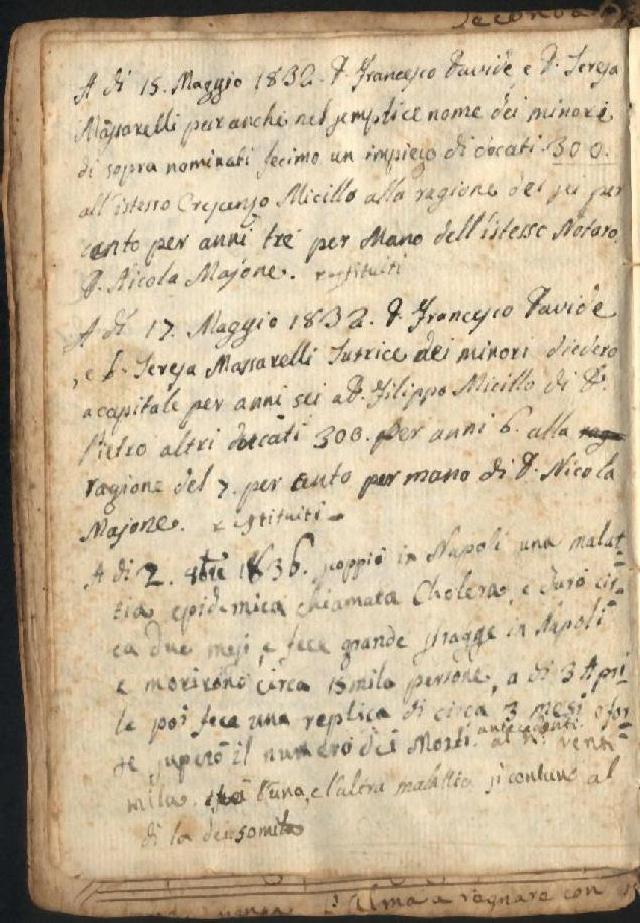 Seconda
A di 15. Maggio 1832. D. Francesco Davide e D. Teresa
Massarelli pur anche nel semplice nome dei minori
di sopra nominati fecimo un impiego di docati 300.
all'istesso Crescenzo Micillo alla ragione del sei per
cento per anni tre per Mano dell'istesso Notaro
D. Nicola Majone. restituiti
A di 17. Maggio 1832. D. Francesco Davide
e D. Teresa Massarelli Tutrice dei minori diedero
a capitale per anni sei a D. Filippo Micillo di D.
Pietro altri ducati 300. per anni 6. alla rag
ragione del 7. per cento per mano di D. Nicola
Majone. restituiti
A di 2. 8bre 1836. scoppiò in Napoli una malat=
tia epidemica chiamata Cholera, e durò cir=
ca due mesi, e fece grande stragge in Napoli
e morirono circa 15 mila persone, a di 3 Apri=
le poi fece una replica di circa 3 mesi e for=
se superò il numero dei Morti antecedenti al N. venti
mila. l'una, e l'altra malattia si contano al
di la
l'alma a regnare con